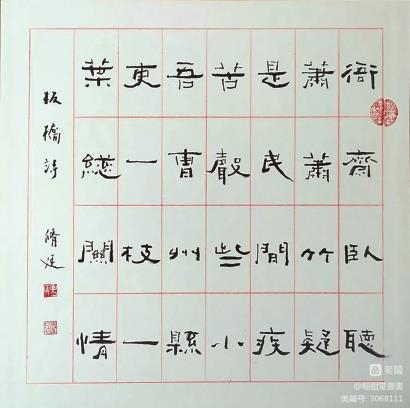 衙齊臥聽
蕭蕭竹疑
是民間疾
苦聲些小
吾曹州縣
吏一枝一
葉總關情
板橋詩
美篇
美篇号: 3068111